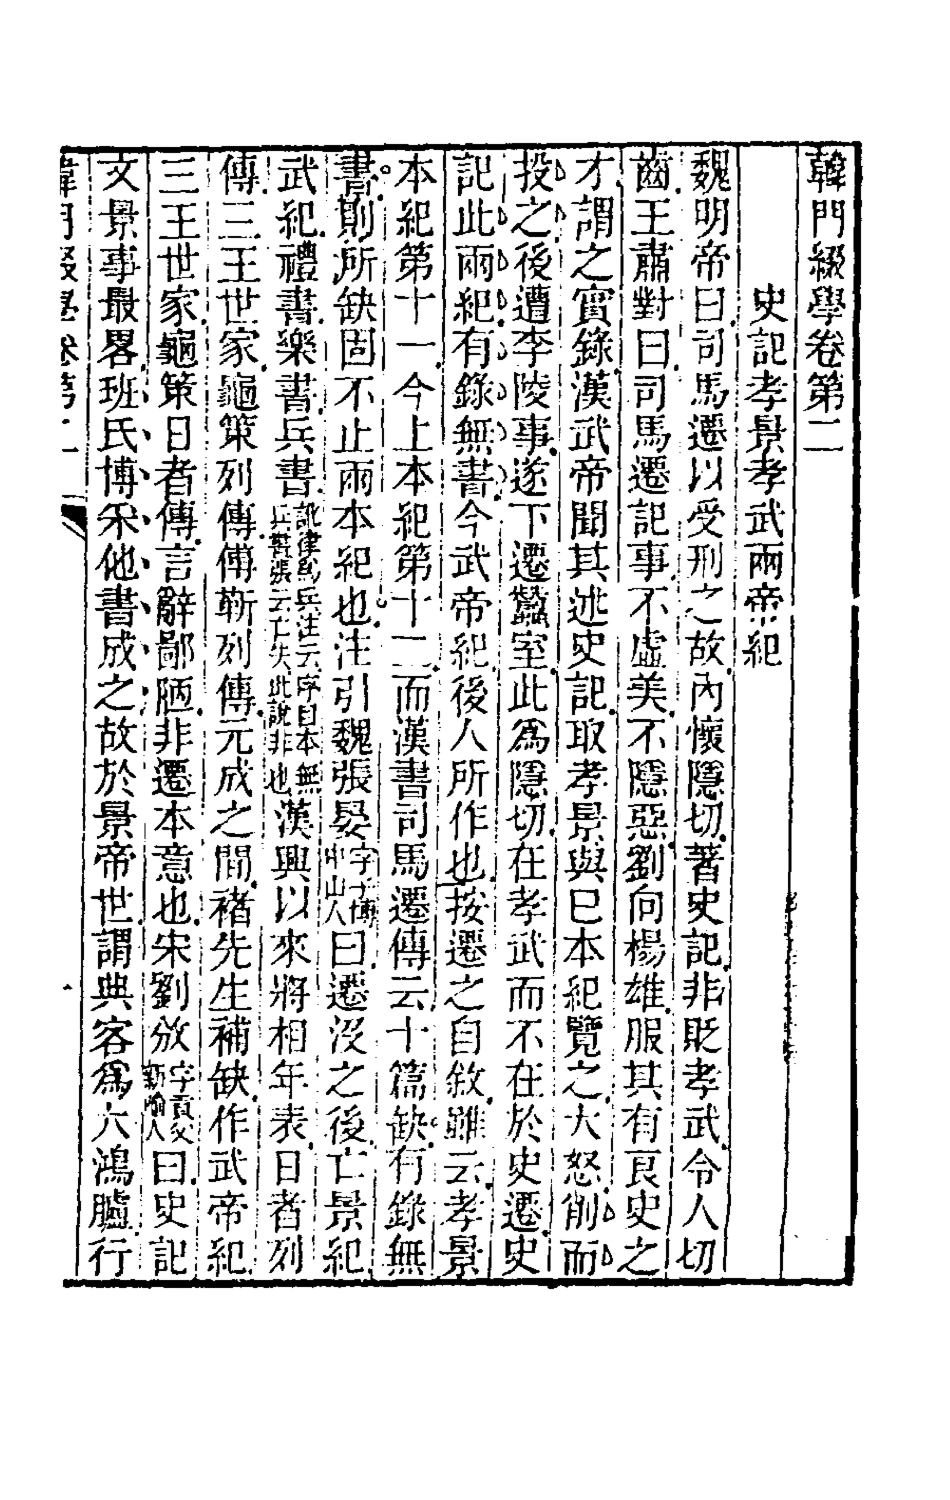 韓門綴學卷第二
史記孝景孝武兩帝紀
魏明帝曰司馬遷以受刑之故內懷隱切著史記非貶孝武令人切
齒王肅對曰司馬遷記事不虛美不隱惡劉向楊雄服其有良史之
才謂之實錄漢武帝聞其述史記取孝景與已本紀覽之大怒削而
投之後遭李陵事遂下遷蠶室此爲隱切在孝武而不在於史遷史
記此兩紀有錄無書今武帝紀後人所作也按遷之自敘雖云孝景
本紀第十一今上本紀第十二而漢書司馬遷傳云十篇缺有錄無
書則所缺固不止兩本紀也注引魏張晏字子博中山人曰遷沒之後亡景紀
武紀禮書樂書兵書訛律爲兵注云序目本無兵書張云亡失此說非也漢興以來將相年表日者列
傳三王世家龜策列傳傅靳列傳元成之間褚先生補缺作武帝紀
三王世家龜策日者傳言辭鄙陋非遷本意也宋劉攽字貢父新喻人曰史記
文景事最畧班氏博采他書成之故於景帝世謂典客爲大鴻臚行
韓門綴學卷第二 一